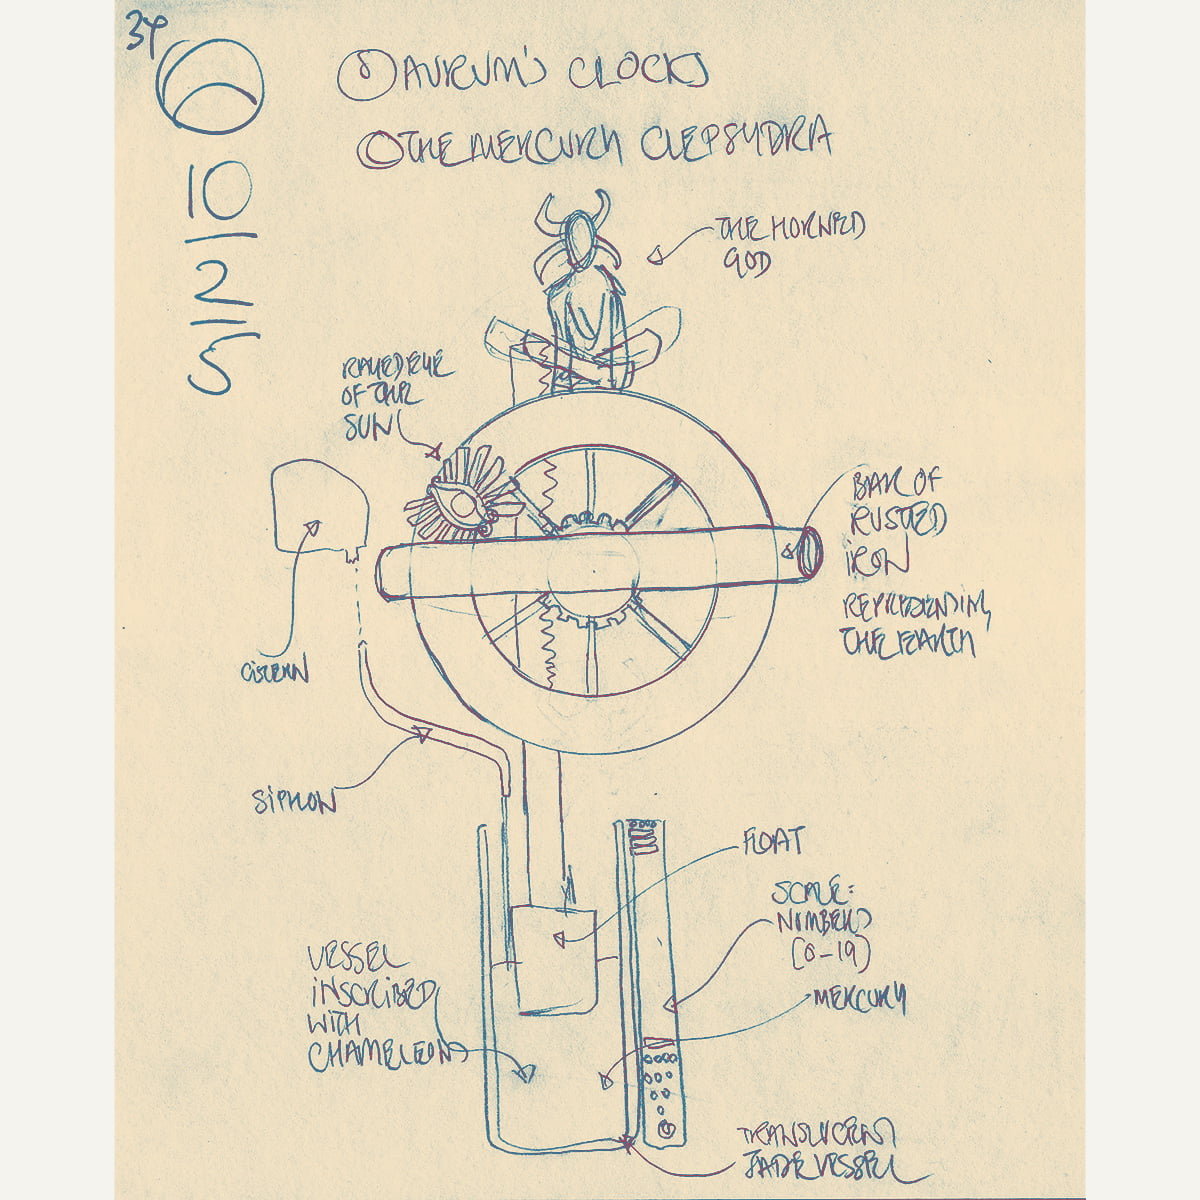 34
AURUM'S CLOCKS
THE MERCURY CLEPSYDRA
10
2
5
THE HORNED
GOD
RAYED EYE
OF THE
SUN
BAR OF
RUSTED
IRON
REPRESENTING
THE EARTH
CISTERN
SIPHON
FLOAT
SCALE:
NUMBERS
(0-19)
MERCURY
VESSEL
INSCRIBED
WITH
CHAMELEONS
TRANSLUCENT
JADE VESSEL